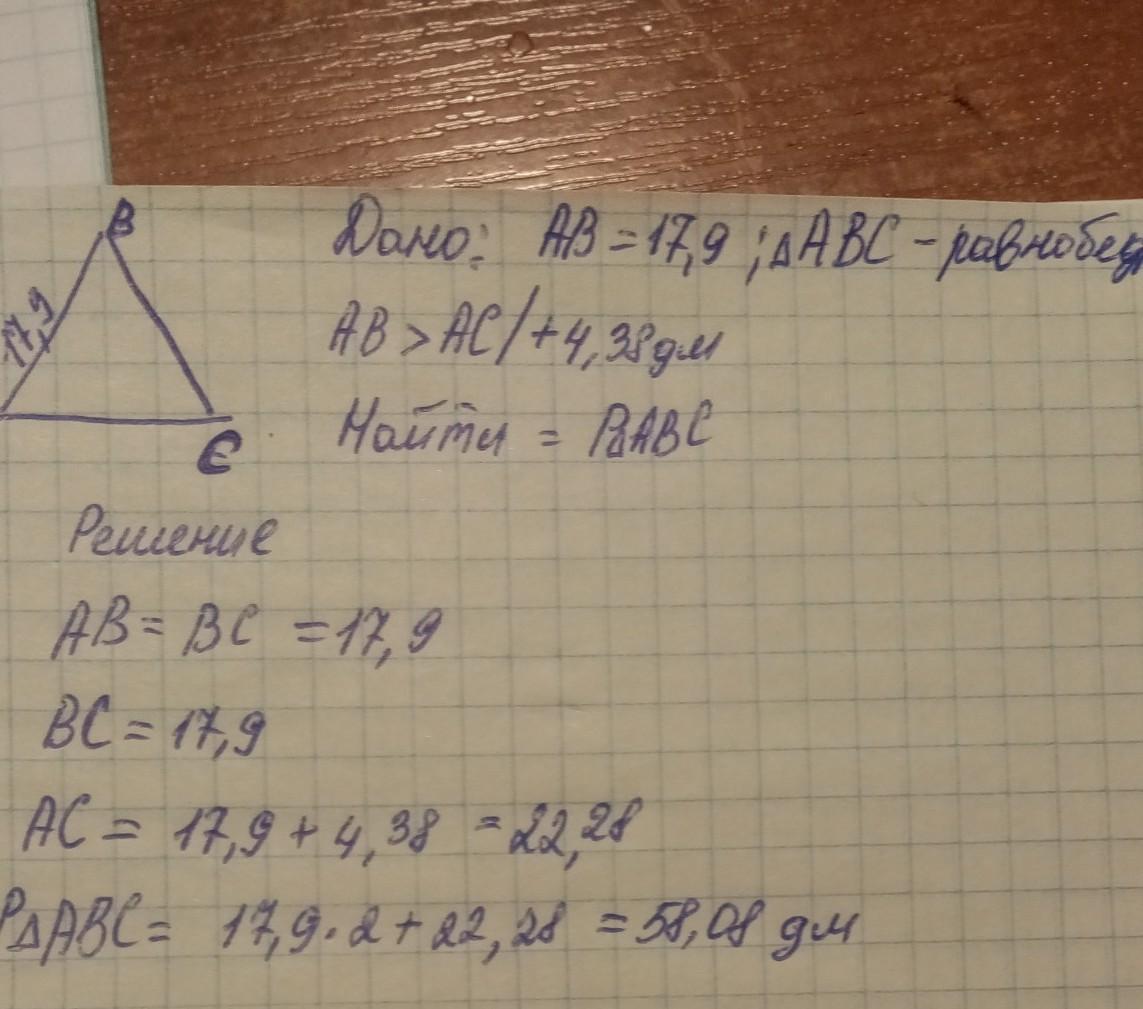 B
17,9
C
Дано: AB = 17,9 ; △ABC – равнобед
AB > AC / + 4,38 дм
Найти = P△ABC
Решение
AB = BC = 17,9
BC = 17,9
AC = 17,9 + 4,38 = 22,28
P△ABC = 17,9 · 2 + 22,28 = 58,08 дм